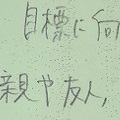 目標に向
親や友人,